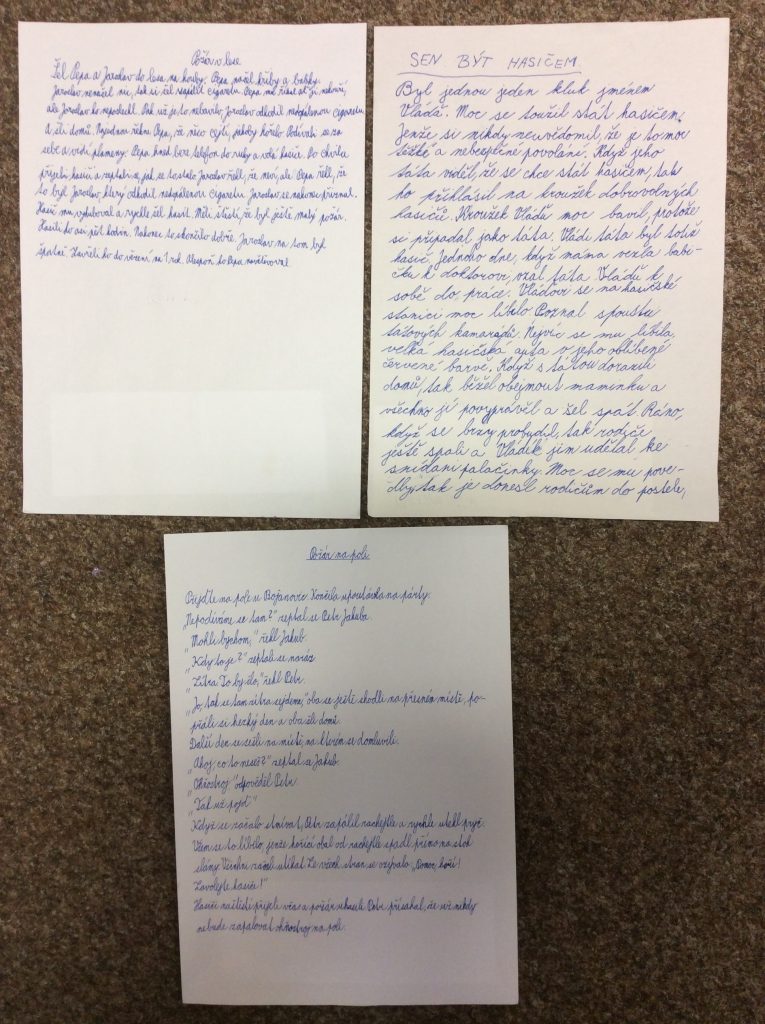 Požár v lese
Šel Pepa a Jaroslav do lesa na houby. Pepa našel hřiby a babky.
Jaroslav nenašel nic, tak si šel zapálit cigaretu. Pepa mu říkal ať ji nekouří,
ale Jaroslav ho neposlechl. Pak už je to nebavilo, Jaroslav odhodil nedopálenou cigaretu
a šli domů. Najednou řekne Pepa, že něco cítí, jakoby hořelo. Podívali se za
sebe a vidí plameny. Pepa hned bere telefon do ruky a volá hasiče. Po chvíli
přijeli hasiči a zeptali se, jak se to stalo. Jaroslav řekl, že neví, ale Pepa řekl, že
to byl Jaroslav, který odhodil nedopálenou cigaretu. Jaroslav se nakonec přiznal.
Hasič mu vyhuboval a rychle šel hasit. Měli štěstí, že byl ještě malý požár.
Hasili to asi pět hodin. Nakonec to skončilo dobře. Jaroslav na tom byl
špatně. Zavřeli ho do vězení na 1 rok. Alespoň ho Pepa navštěvoval.
SEN BÝT HASIČEM
Byl jednou jeden kluk jménem
Vláďa. Moc se toužil stát hasičem.
Jenže si nikdy neuvědomil, že je to moc
těžké a nebezpečné povolání. Když jeho
táta viděl, že se chce stát hasičem, tak
ho přihlásil na kroužek dobrovolných
hasičů. Kroužek Vláďu moc bavil, protože
si připadal jako táta. Vládi táta byl totiž
hasič. Jednoho dne, když máma vezla babi-
čku k doktorovi, vzal táta Vláďu k
sobě do práce. Vláďovi se na hasičské
stanici moc líbilo. Poznal spoustu
tátových kamarádů. Nejvíc se mu líbila,
velká hasičská auta v jeho oblíbené
červené barvě. Když s tátou dorazili
domů, tak běžel obejmout maminku a
všechno jí povyprávěl a šel spát. Ráno,
když se brzy probudil, tak rodiče
ještě spali a Vládík jim udělal ke
snídani palačinky. Moc se mu pove-
dly, tak je donesl rodičům do postele,
Požár na poli
Přijďte na pole u Bojanovic. Končila upoutávka na párty.
„Nepodíváme se tam?" zeptal se Petr Jakuba.
„Mohli bychom," řekl Jakub.
„Kdy to je?" zeptali se naráz.
„Zítra. To by šlo," řekl Petr.
„Jo, tak se tam zítra sejdeme," oba se ještě shodli na přesném místě, po-
přáli si hezký den a oba šli domů.
Další den se sešli na místě, na kterém se domluvili.
„Ahoj, co to neseš?" zeptal se Jakub.
„Ohňostroj" odpověděl Petr.
„Tak už pojď."
Když se začalo stmívat, Petr zapálil rachejtle a rychle utekl pryč.
Všem se to líbilo, jenže hořící obal od rachejtle spadl přímo na stoh
slámy. Všichni začali utíkat. Ze všech stran se ozývalo „Pomoc, hoří!
Zavolejte hasiče!"
Hasiči naštěstí přijeli včas a požár uhasili. Petr přísahal, že už nikdy
nebude zapalovat ohňostroj na poli.